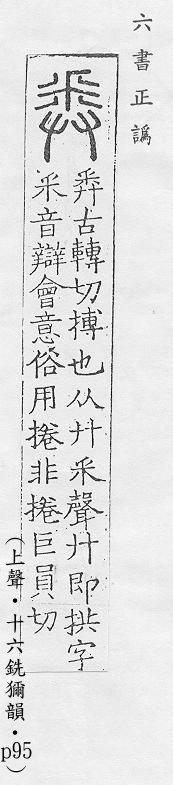 六書正譌
𢍏
𢍏古轉切搏也从廾釆聲廾即拱字
釆音辯會意俗用捲非捲巨員切
（上聲・十六銑獮韻・p95）